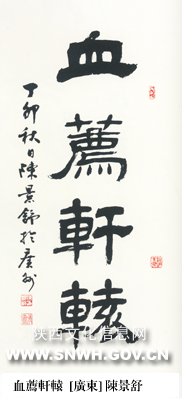 血薦軒轅
丁卯秋日陳景舒於廣州
陕西文化信息网
WWW.SNWH.GOV.CN
血薦軒轅 [廣東] 陳景舒